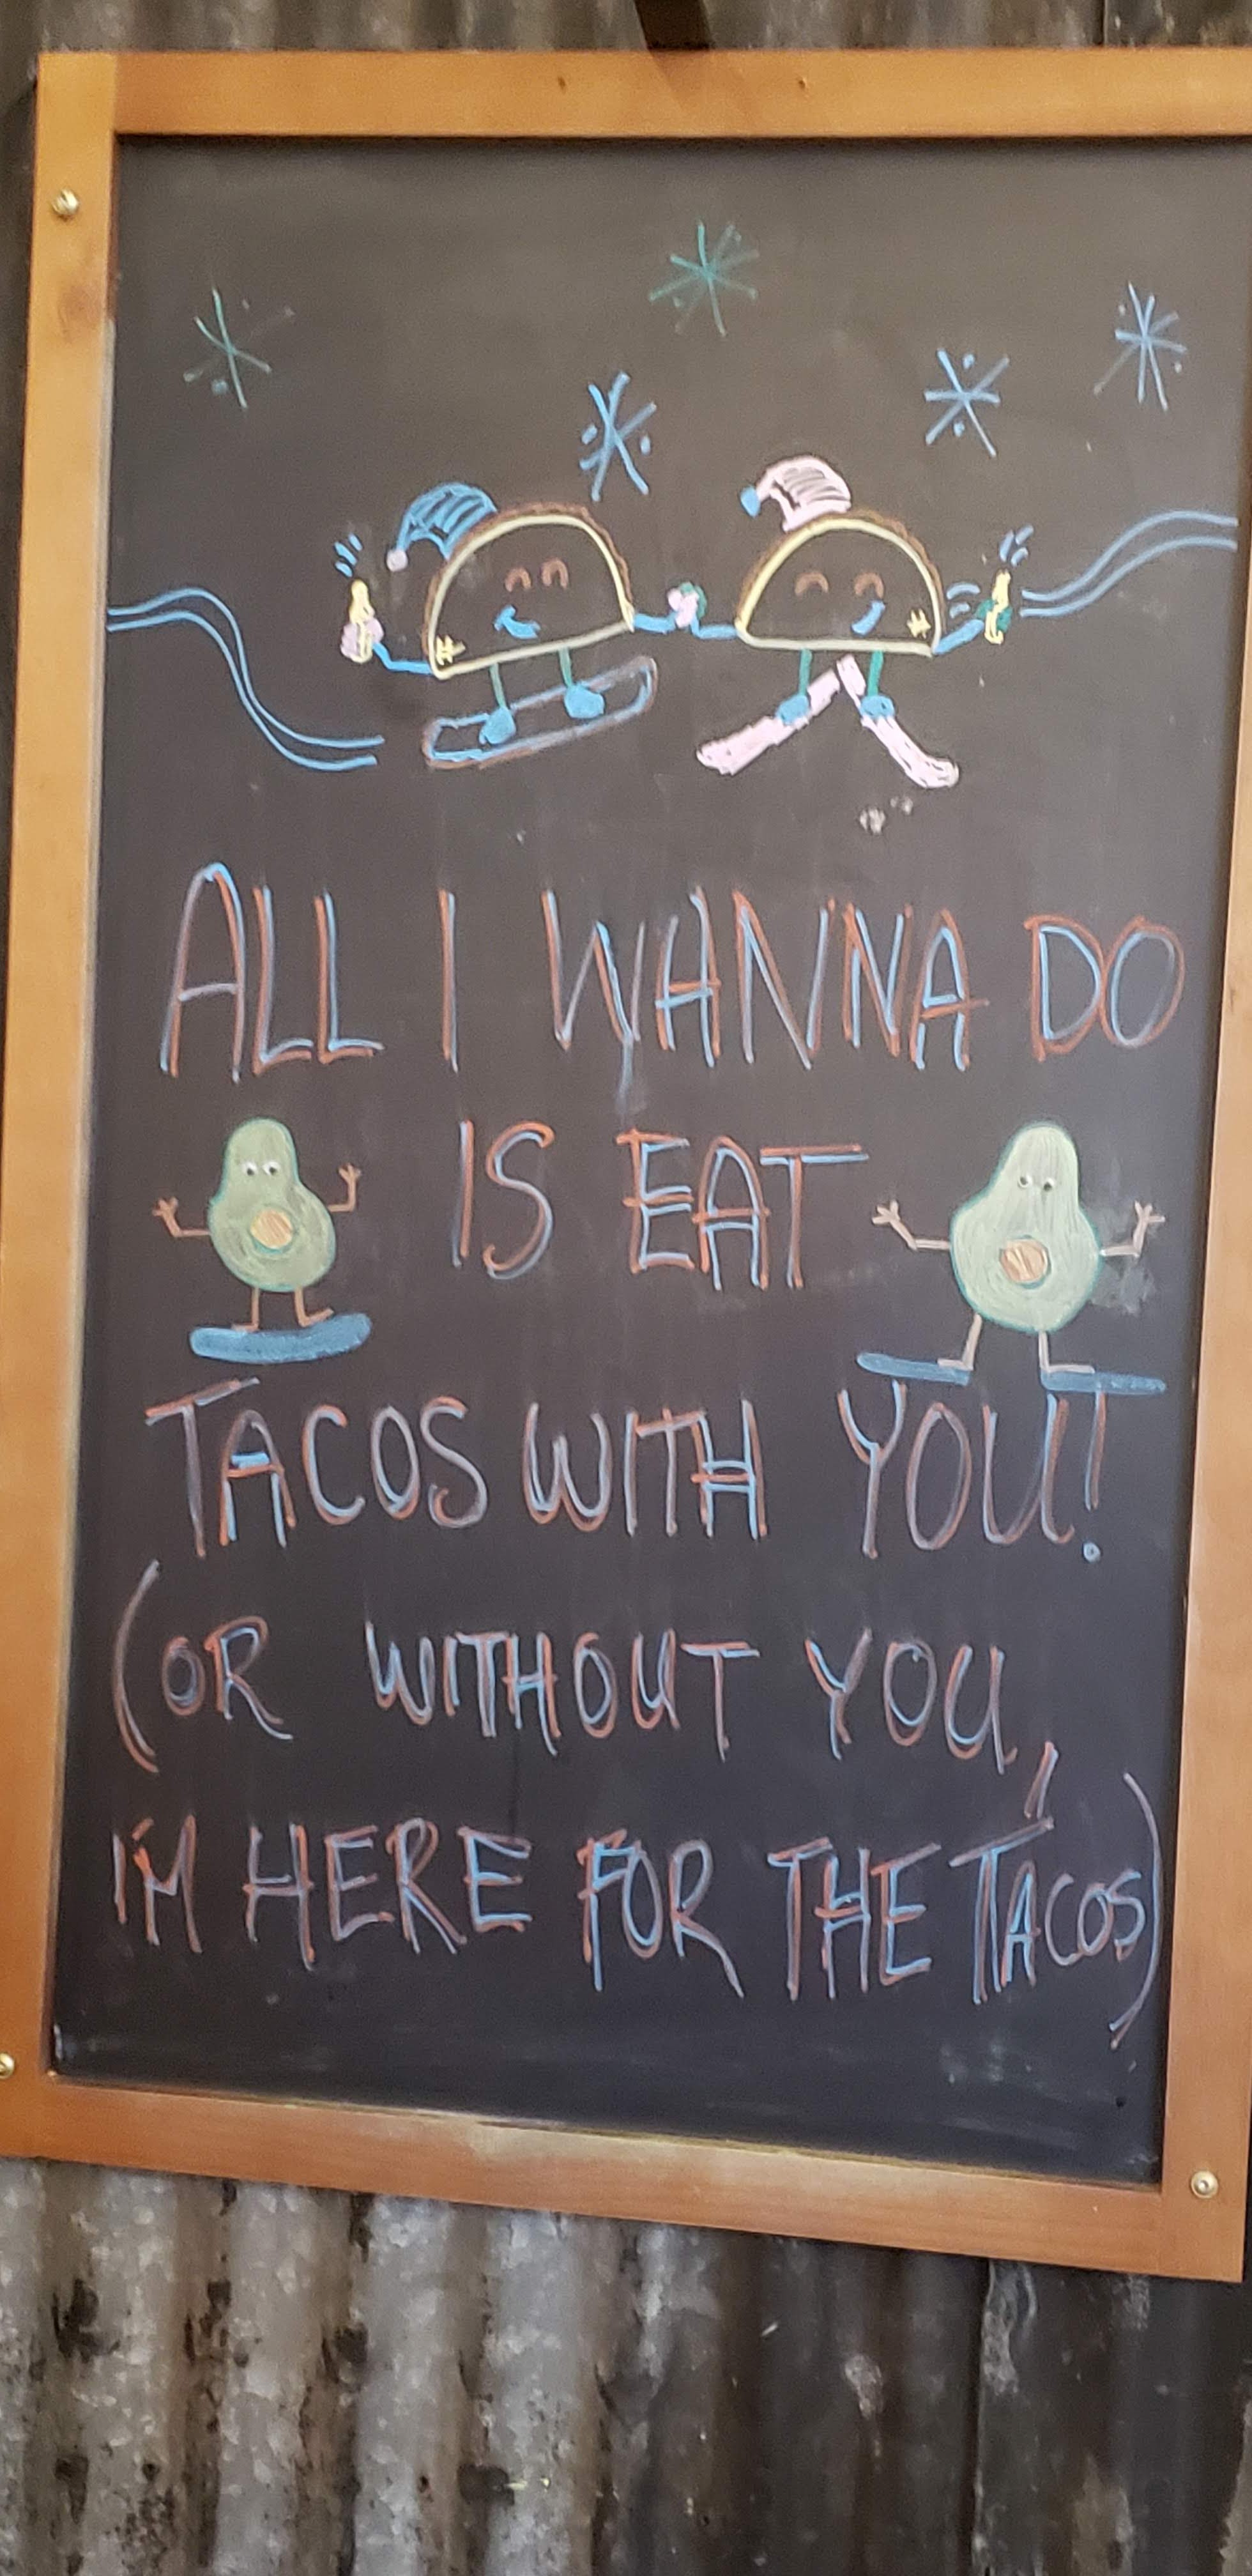 ALL I WANNA DO
IS EAT
TACOS WITH YOU!
(OR WITHOUT YOU,
I'M HERE FOR THE TACOS)